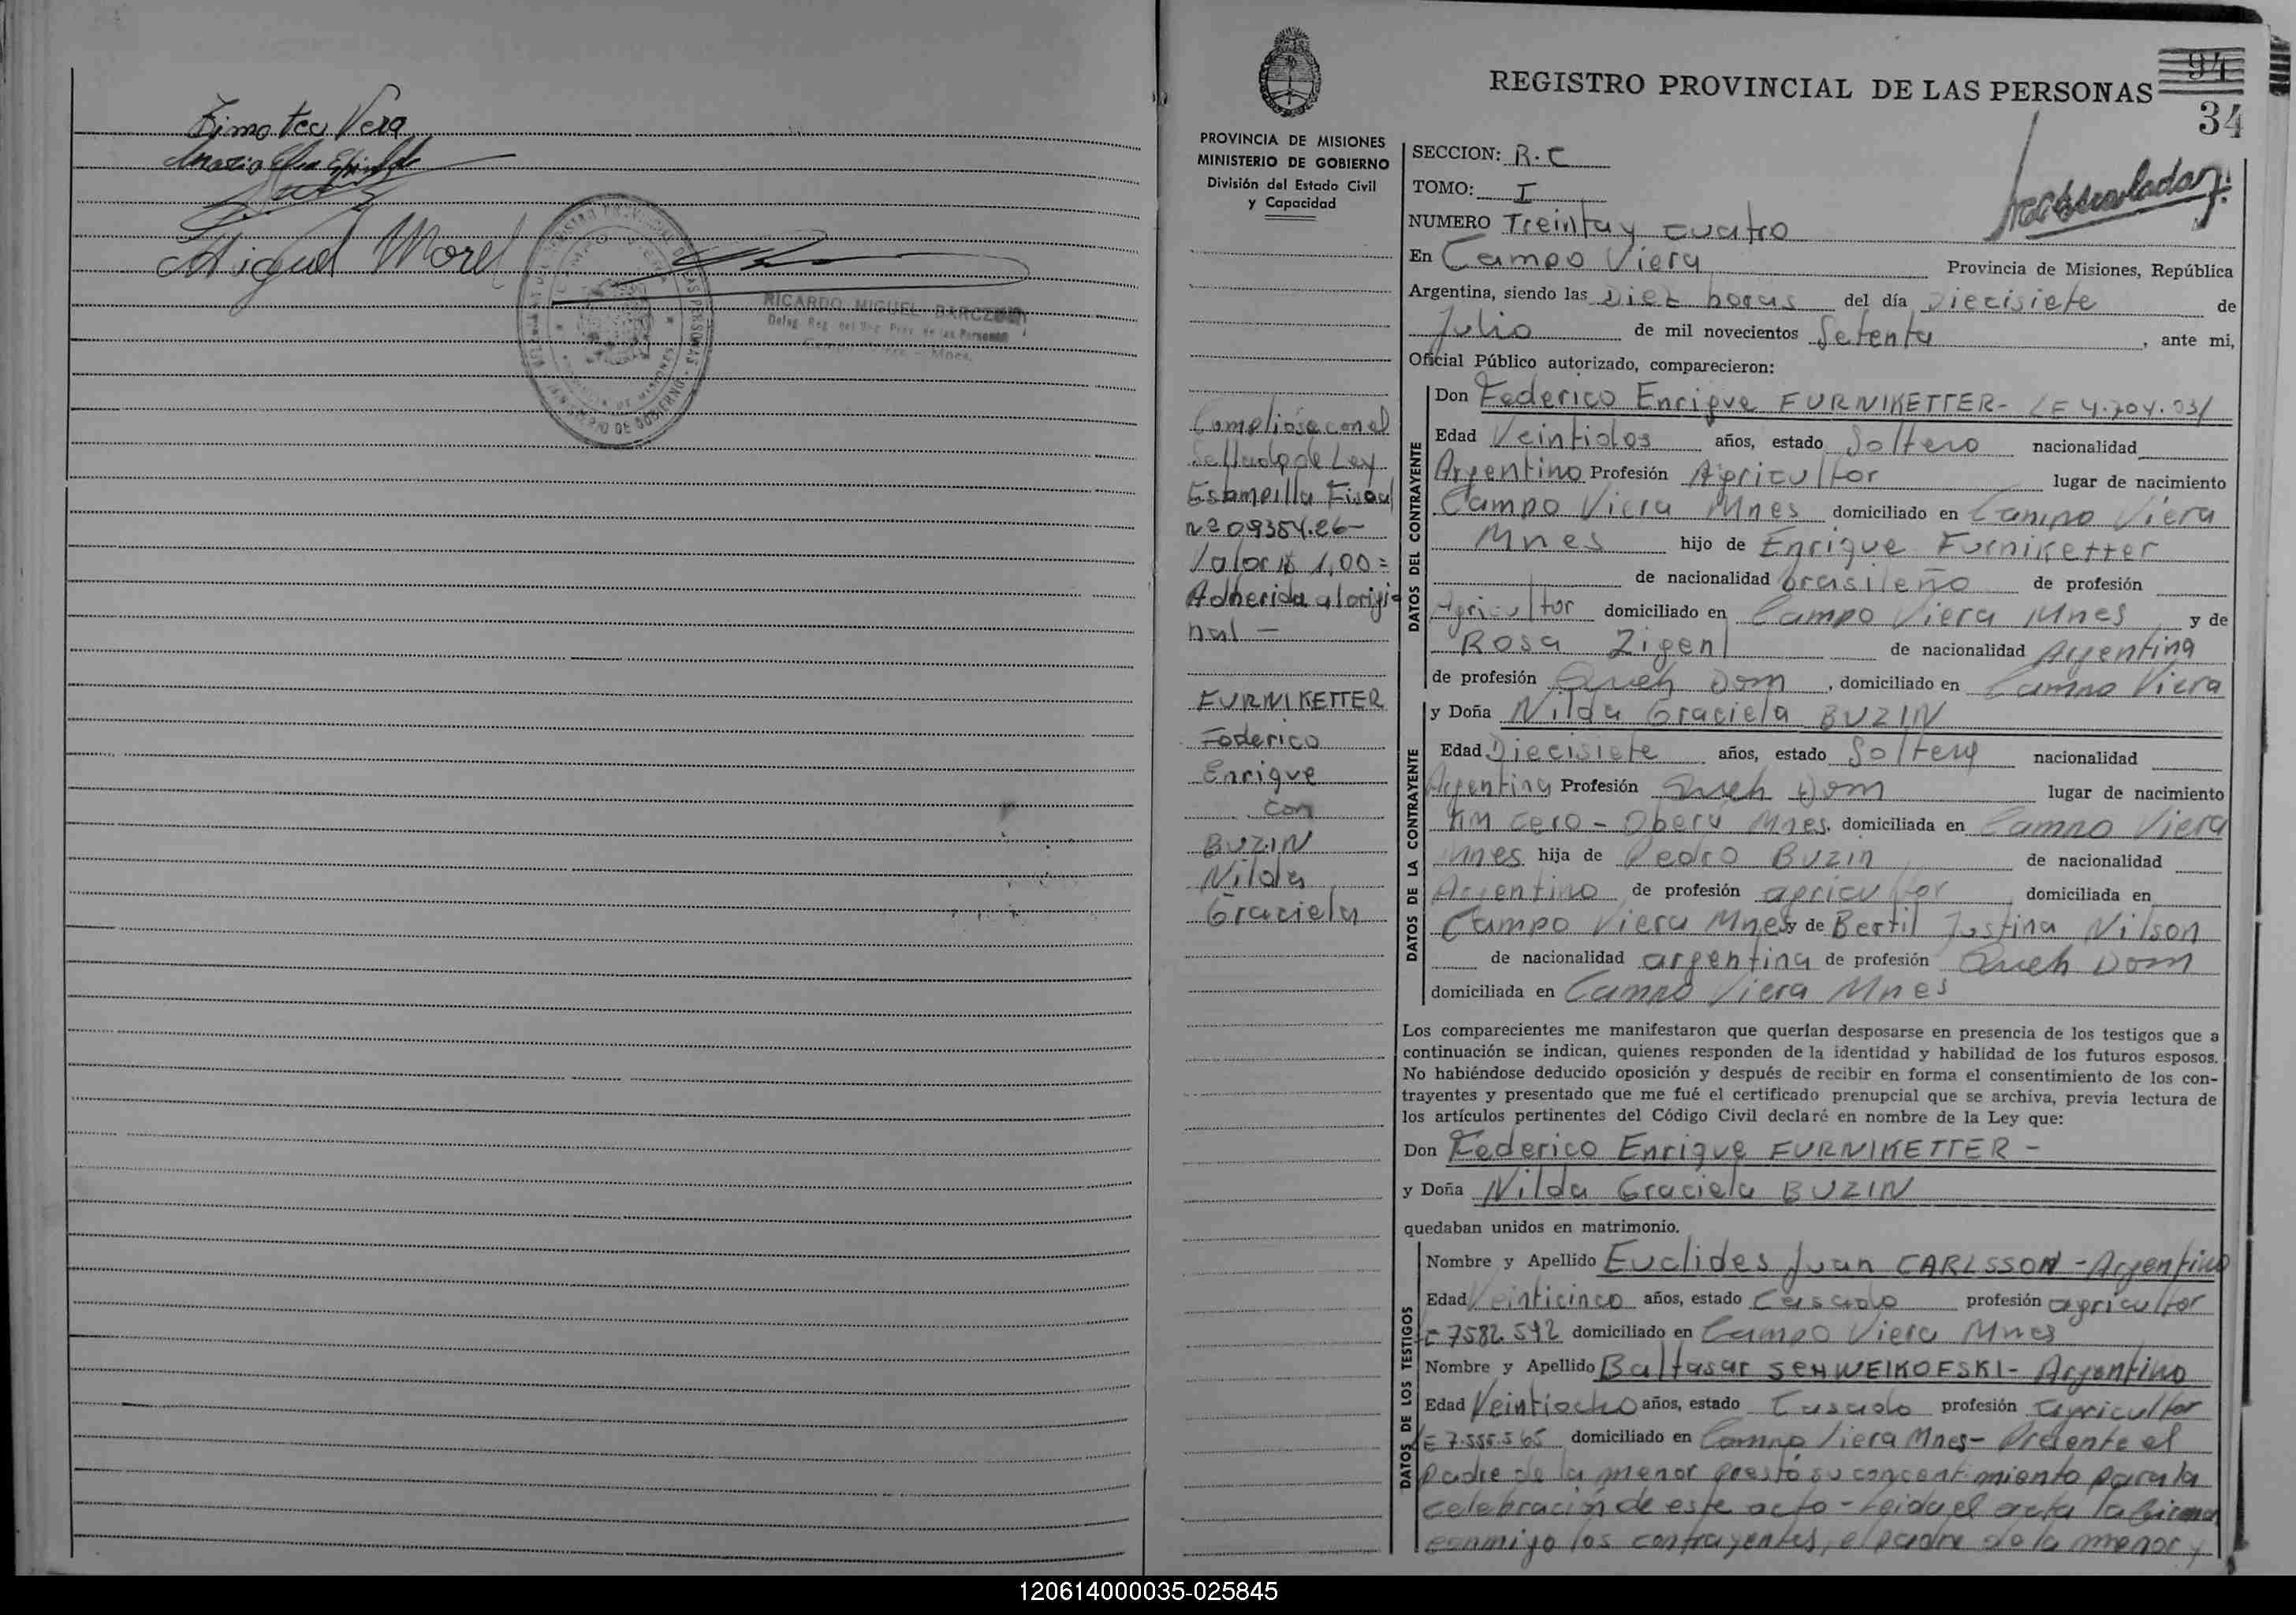 Timoteo Vera
Miguel Morel
RICARDO MIGUEL
Deleg. Reg. del Reg. Prov. de las Personas
REGISTRO PROVINCIAL DE LAS PERSONAS
94
34
PROVINCIA DE MISIONES
MINISTERIO DE GOBIERNO
División del Estado Civil
y Capacidad
Complióse con el
Sellado de Ley
Estampilla Fiscal
nº 0935426-
Valor $ 1,00=
Adherida al origi
nal -
FURNIKETTER
Federico
Enrique
con
BUZIN
Nilda
Graciela
SECCION: R.C
TOMO: I
NUMERO Treinta y cuatro
En Campo Viera Provincia de Misiones, República
Argentina, siendo las Diez horas del día Diecisiete de
Julio de mil novecientos Setenta, ante mi,
Oficial Público autorizado, comparecieron:
DATOS DEL CONTRAYENTE
Don Federico Enrique FURNIKETTER- LE 4.704.031
Edad Veintidos años, estado Soltero nacionalidad
Argentino Profesión Agricultor lugar de nacimiento
Campo Viera Mnes domiciliado en Campo Viera
Mnes hijo de Enrique Furniketter
de nacionalidad brasileño de profesión
Agricultor domiciliado en Campo Viera Mnes y de
Rosa Zigenl de nacionalidad Argentina
de profesión Queh Dom, domiciliado en Campo Viera
DATOS DE LA CONTRAYENTE
y Doña Nilda Graciela BUZIN
Edad Diecisiete años, estado Soltera nacionalidad
Argentina Profesión Queh Dom lugar de nacimiento
Km cero - Obera Mnes. domiciliada en Campo Viera
Mnes hija de Pedro Buzin de nacionalidad
Argentino de profesión agricultor domiciliada en
Campo Viera Mnes y de Bertil Justina Nilson
de nacionalidad argentina de profesión Queh Dom
domiciliada en Campo Viera Mnes
Los comparecientes me manifestaron que querían desposarse en presencia de los testigos que a
continuación se indican, quienes responden de la identidad y habilidad de los futuros esposos.
No habiéndose deducido oposición y después de recibir en forma el consentimiento de los con-
trayentes y presentado que me fué el certificado prenupcial que se archiva, previa lectura de
los artículos pertinentes del Código Civil declaré en nombre de la Ley que:
Don Federico Enrique FURNIKETTER -
y Doña Nilda Graciela BUZIN
quedaban unidos en matrimonio.
DATOS DE LOS TESTIGOS
Nombre y Apellido Euclides Juan CARLSSON - Argentino
Edad Veinticinco años, estado Casado profesión agricultor
LE 7582.592 domiciliado en Campo Viera Mnes
Nombre y Apellido Baltasar SCHWEIKOFSKI- Argentino
Edad Veintiocho años, estado Casado profesión agricultor
LE 7.555.565 domiciliado en Campo Viera Mnes- Presente el
padre de la menor prestó su concentimiento para la
celebración de este acto - leida el acta la firman
conmigo los contrayentes, el padre de la menor y
120614000035-025845